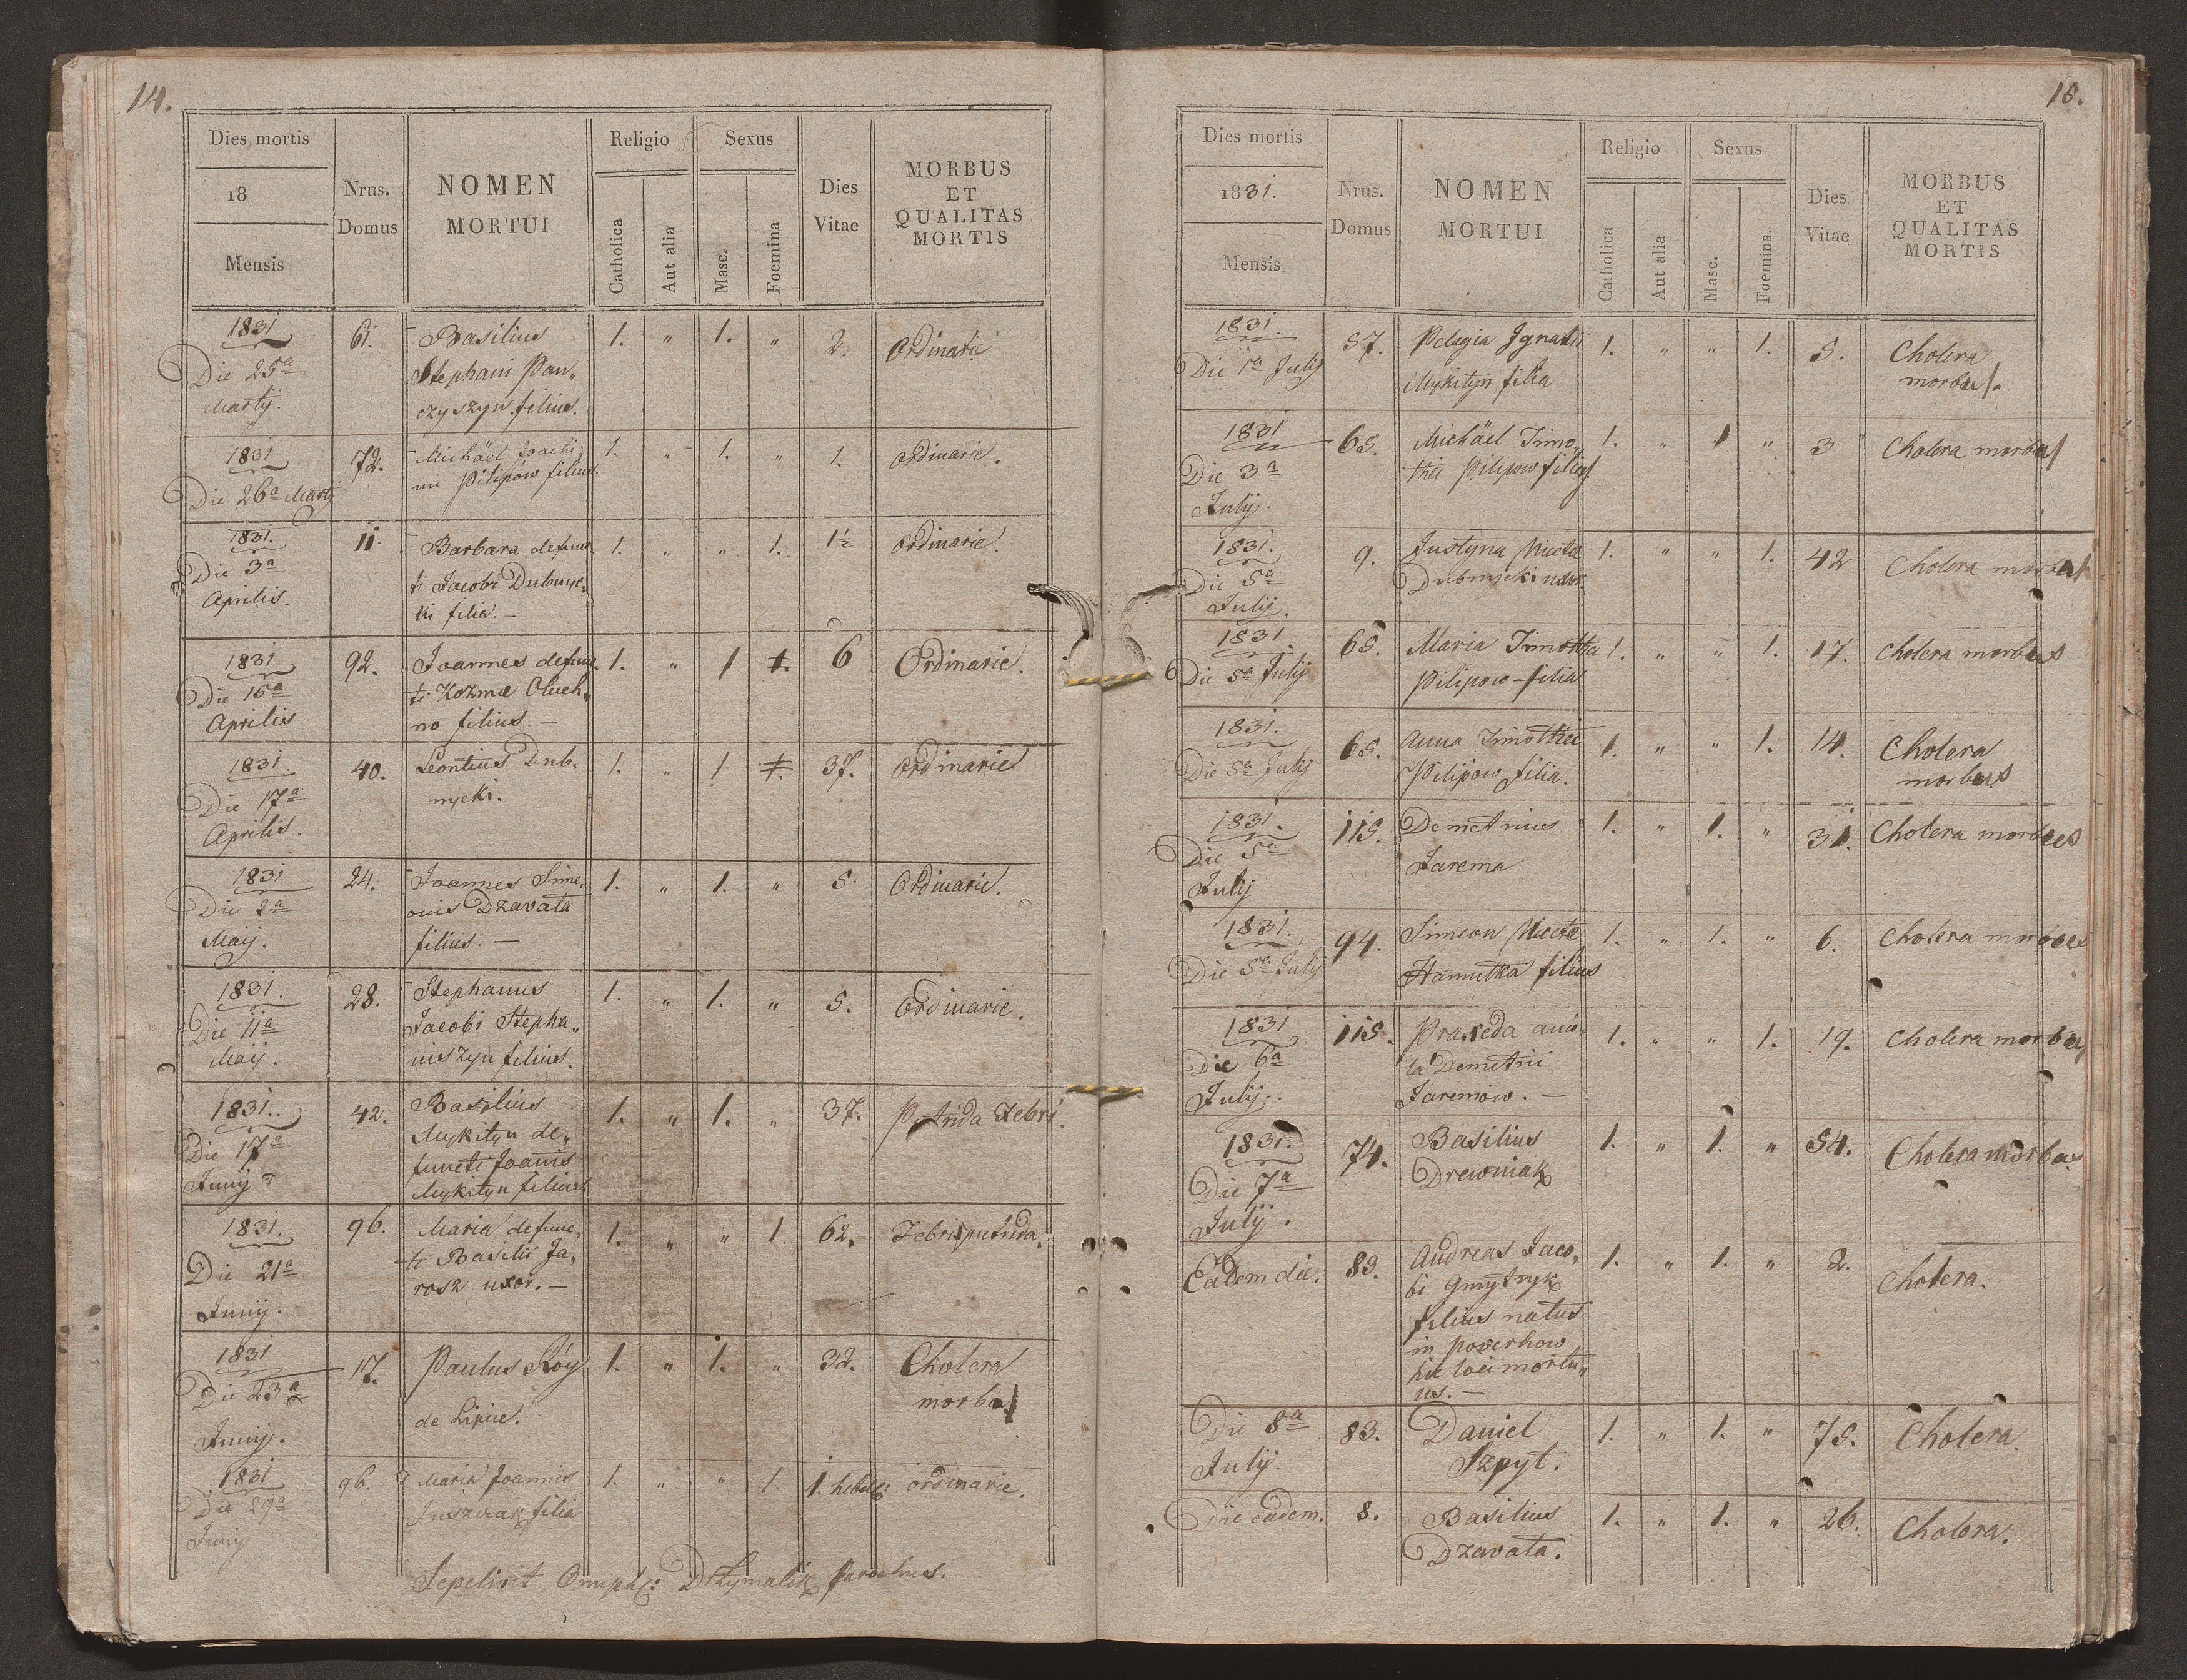 14.
Dies mortis
18
Mensis
Nrus.
Domus
NOMEN
MORTUI
Religio
Catholica
Aut alia
Sexus
Masc.
Foemina
Dies
Vitae
MORBUS
ET
QUALITAS
MORTIS
1831 61. Basilius 1. " 1. " 2. Ordinarie
Die 25a Stephani Pan„
Martij. czyszyn filius.
1831 72. Michäel Joachi„ 1. " 1. " 1. ordinarie.
Die 26a Martij mi Pilipów filius.
1831. 11. Barbara defunc„ 1. " " 1. 1½ ordinarie.
Die 3a ti Jacobi Dubnyc„
Aprilis. ki filia. —
1831 92. Joannes defunc„ 1. " 1 1. 6 Ordinarie.
Die 15a ti Kozmae Oluch„
Aprilis no filius. —
1831. 40. Leontius Dub„ 1. " 1 1. 37. Ordinarie
Die 17a nycki.
Aprilis.
1831 24. Joannes Sime„ 1. " 1. " 5. Ordinarie.
Die 2a onis Dzavata
Maij. filius. —
1831. 28. Stephanus 1. " 1. " 5. Ordinarie.
Die 11a Jacobi Stepha„
Maij. niszyn filius.
1831. 42. Basilius 1. " 1. " 37. Putrida Febri.
Die 17a Mykityn de„
Junij functi Joanis
Mykityn filius.
1831. 96. Maria defunc„ 1. " " 1. 62. Febris putrida.
Die 21a ti Basilii Ja„
Junij. rosz uxor. —
1831 17. Paulus Róy 1. " 1. " 32. Cholera
Die 23a de Lipice. morbus
Junij.
1831 96. Maria Joannis 1. " " 1. 1. ordinarie.
Die 29a Juszczak filia
Junij
Sepelivit Onuph: Drzymalik parochus.
15.
Dies mortis
1831.
Mensis
Nrus.
Domus
NOMEN
MORTUI
Religio
Catholica
Aut alia
Sexus
Masc.
Foemina.
Dies
Vitae
MORBUS
ET
QUALITAS
MORTIS
1831. 57. Pelagia Ignatii 1. " " 1. 5. Cholera
Die 1a Julij Mykityn filia morbus.
1831 65. Michäel Timo„ 1. " 1 " 3 Cholera morbus
Die 3a thei Pilipow filius
Julij.
1831. 9. Justyna Nicetae 1. " " 1. 42 Cholera morbus
Die 5a Dubnycki uxor.
Julij.
1831. 65. Maria Timothei 1. " " 1. 17. Cholera morbus
Die 5a Julij Pilipow filia
1831. 65. Anna Timothei 1. " " 1. 14. Cholera
Die 5a Julij Pilipow filia. morbus
1831. 115. Demetrius 1. " 1. " 31. Cholera morbus
Die 5a Jarema
Julij
1831. 94. Simeon Nicetae 1. " 1. " 6. Cholera morbus
Die 5a Julij Hamutka filius
1831 115. Praxeda 1. " " 1. 19. Cholera morbus
Die 6a la Demetrii
Julij. Jaremow. —
1831. 74. Basilius 1. " 1. " 54. Cholera morbus
Die 7a Drewniak
Julij.
Eadem die. 83. Andreas Jaco„ 1. " 1. " 2. Cholera.
bi Gmytryk
filius natus
in powerhow
hic loci mortu„
us. —
Die 8a 83. Daniel 1. " 1. " 75. Cholera
Julij. Szpyt.
Die eadem. 8. Basilius 1. " 1. " 26. Cholera.
Dzavata.